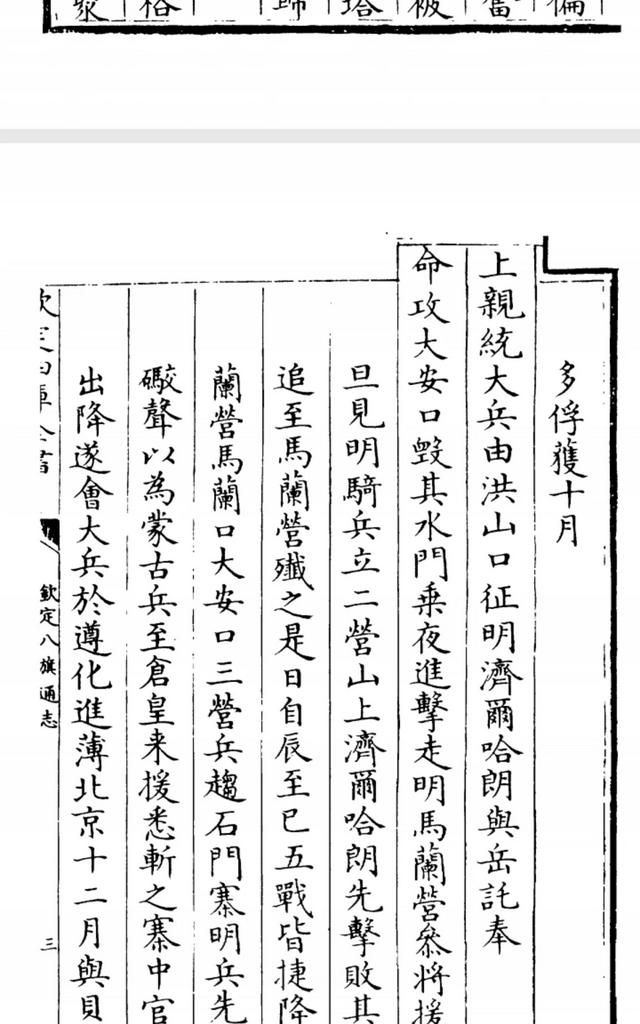 偏
奮
被
塔
歸
格
眾
多俘獲十月
上親統大兵由洪山口征明濟爾哈朗與岳託奉
命攻大安口毀其水門乗夜進擊走明馬蘭營叅將援
旦見明騎兵立二營山上濟爾哈朗先擊敗其
追至馬蘭營殲之是日自辰至巳五戰皆捷降
蘭營馬蘭口大安口三營兵趨石門寨明兵先
礮聲以為蒙古兵至倉皇来援悉斬之寨中官
出降遂會大兵於遵化進薄北京十二月與貝
欽定四庫全書
欽定八旗通志
三